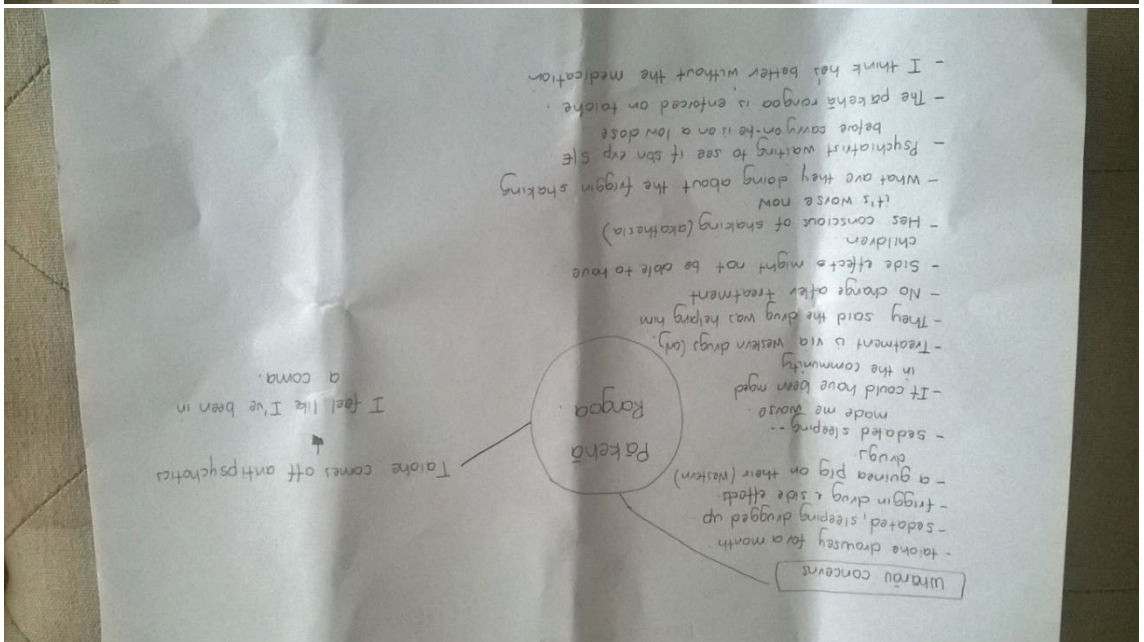 Whānau concerns
- taiohe drowsey for a month
- sedated, sleeping drugged up
- friggin drug & side effects.
- a guinea pig on their (western)
drugs.
- sedated sleeping --
made me worse.
- It could have been mged
in the community
- Treatment is via western drugs (only).
- They said the drug was helping him
- No change after Treatment
- Side effects might not be able to have
children
- Hes conscious of shaking (akathesia)
it's worse now
- What are they doing about the friggin shaking
- Psychiatrist waiting to see if son exp S/E
before carry on-he is on a low dose
- The pākehā rongoa is enforced on taiohe.
- I think he's better without the medication
Pākehā
Rongoa.
Taiohe comes off antipsychotics
I feel like I've been in
a coma.